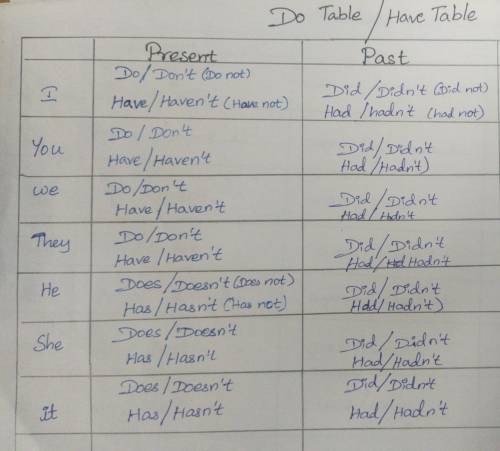 Do Table / Have Table
Present Past
I Do/Don't (Do not) Did/Didn't (Did not)
Have/Haven't (Have not) Had/hadn't (had not)
You Do/Don't Did/Didn't
Have/Haven't Had/Hadn't)
we Do/Don't Did/Didn't
Have/Haven't Had/Hdn't
They Do/Don't Did/Didn't
Have/Haven't Had/Hadn't
He Does/Doesn't (Does not) Did/Didn't
Has/Hasn't (Has not) Had/Hadn't)
She Does/Doesn't Did/Didn't
Has/Hasn't Had/Hadn't
it Does/Doesn't Did/Didn't
Has/Hasn't Had/Hadn't